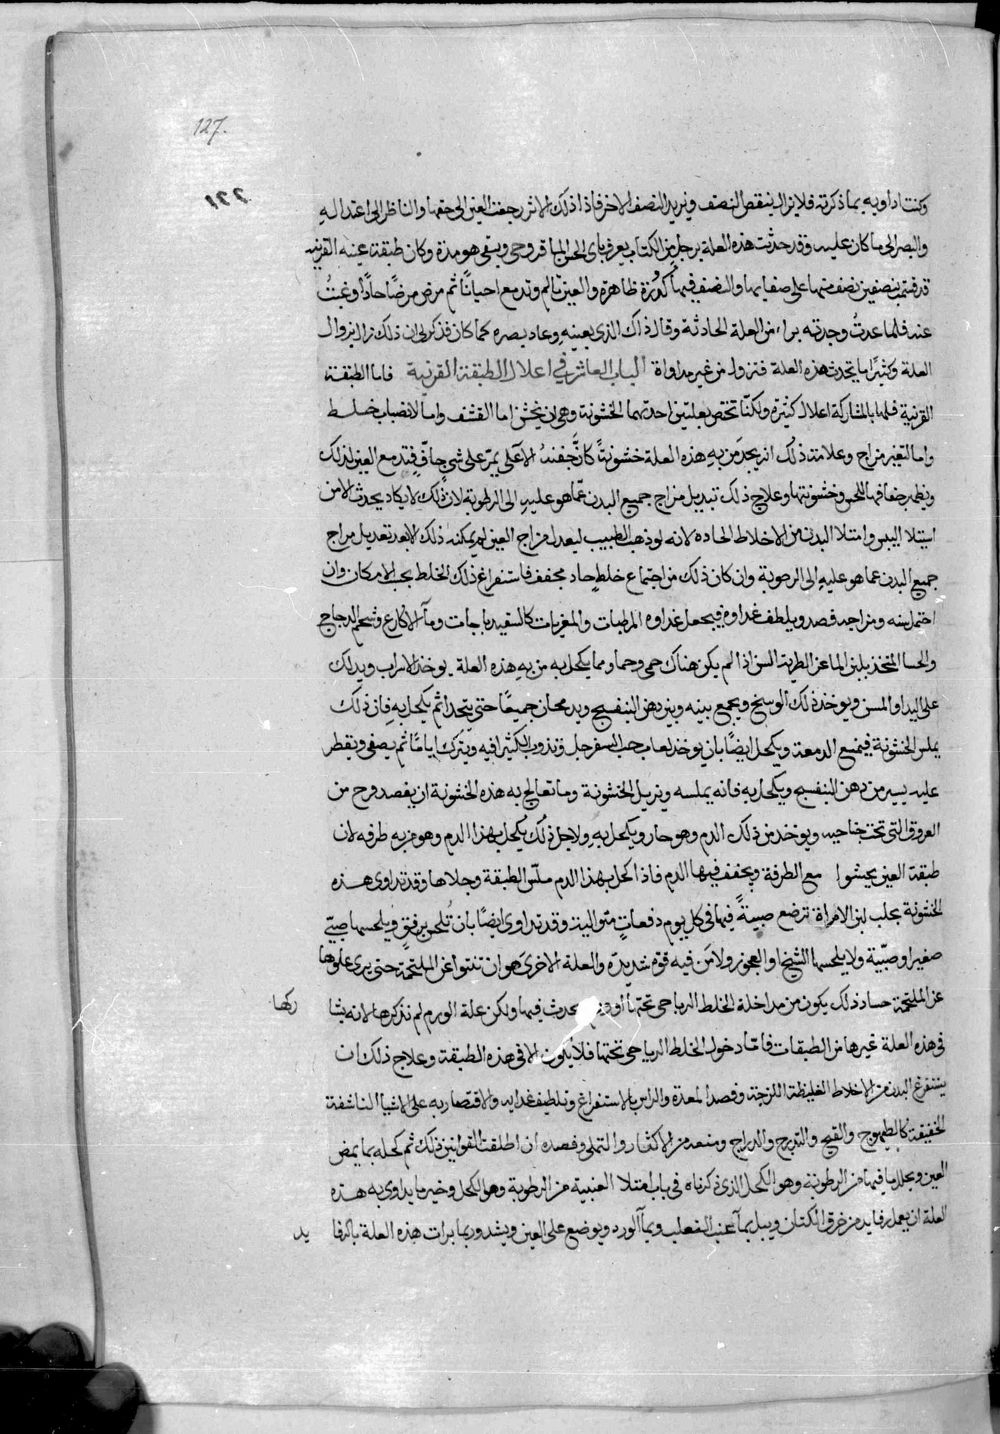 127.
وكنت اداويه بما ذكرته فلا يزال ينقص النصف ويزيد النصف الاخر فاذا ذلك الاثر رجعت العين الى حقها والناظر الى اعتداله
والبصر الى ما كان عليه وقد حدثت هذه العلة برجل من الكتاب يعرف بابى الحسن وبقى هو مدة وكان طبقة عينه القرنيه
قد قسمت بنصفين نصف منها على صفايها والنصف فيها كدورة ظاهرة والعين تالم وتدمع احيانًا ثم مرض مرضًا حادًا وغبتُ
عنه فلما عدتُ وجدته براء من العلة الحادثة وقال ذاك الذى بعينه وعاد بصره كما كان فذكر لى ان ذلك زال بزوال
العلة وكثيرًا ما يحدث هذه العلة فتزول من غير مداواة الباب العاشر فى اعلال الطبقة القرنية فاما الطبقة
القرنية فلها بالمشاركة اعلال كثيرة ولكنّا تختص بعلتين احدتهما الخشونة وهى ان يخشن اما القشف واما لانصباب خلط
واما لتغير مزاج وعلامة ذلك انه يجد من به هذه العلة خشونةً كانّ جفنه الاعلى يمرّ على شى جافّ فتدمع العين لذلك
ويظهر جفافها للحس وخشونتها وعلاج ذلك تبديل مزاج جميع البدن عمّا هو عليه الى الرطوبة لانّ ذلك لا يكاد يحدث الا من
استيلا اليبس وامتلا البدن من الاخلاط الحاده لانه لو ذهب الطبيب ليعدل مزاج العين لم يمكنه ذلك الا بعد تعديل مزاج
جميع البدن عما هو عليه الى الرطوبة وان كان ذلك من اجتماع خلط حاد مجفف فاستفراغ ذلك الخلط بحسب الامكان وان
احتمل سنه ومزاجه فصد ويلطف غداوه فيجعل غداوه المرطبات والمغريات كالسفيد باجات وماء الاكارع وشحم الدجاج
والحسا المتخذ بلبن الماعز الطرية السن اذا لم يكن هناك حمى وحما ومما يكحل به من به هذه العلة يوخذ الاسراب ويدلك
على اليد او المسن ويوخذ ذلك الوسخ ويجمع بينه وبين دهن البنفسج ويدعكان جميعًا حتى يتحدا ثم يكحل به فان ذلك
يملس الخشونة فيمنع الدمعة ويكحل ايضًا بان يوخذ لعاب حب السفرجل وتذوب الكثيرا فيه ويترك ايامًا ثم يصفى ويقطر
عليه يسير من دهن البنفسج ويكحل به فانه يملسه ويزيل الخشونة وما تعالج به هذه الخشونة ان يفصد فرخ من
العروق التى تحت جناحيه ويوخذ من ذلك الدم وهو حار ويكحل به ولاجل ذلك يكحل بهذا الدم وهو من به طرفه لان
طبقة العين يخشوا مع الطرفة ويجفف فيها الدم فاذا كحل بهذا الدم ملّس الطبقة وجلاها وقد تداوى هذه
الخشونة بحلب لبن الامراة ترضع صبيةً فيها فى كل يوم دفعاتٍ متوالية وقد تداوى ايضًا بان تُلحس برفق ويلحسها صبىّ
صغير او صبيّة ولا يلحسها الشيخ او العجوز ولا من فيه قوة شديدة والعلة الاخرى هو ان تنتوا عن الملتحمة حتى يرى علوها
عن الملتحمة حسا وذلك يكون من مداخلة الخلط الرياحى تحتها او ورم يحدث فيها ولكن علة الورم لم نذكرها لانه يشا ركها
فى هذه العلة غيرها من الطبقات فامّا دخول الخلط الرياحى تحتها فلا يكون الا فى هذه الطبقة وعلاج ذلك ان
يستفرغ البدن من الاخلاط الغليظة اللزجة وقصد المعدة والراس بالاستفراغ وتلطيف غدايه والاقتصار به على الاشيا الناشفة
الخفيفة كالطيهوج والقبج والتدرج والدراج ومنعه من الاكثار والتملى وفصده ان اطلقت القوانين ذلك ثم كحله بما يمض
العين ويحلل ما فيها من الرطوبة وهو الكحل الذى ذكرناه فى باب امتلا العنبية من الرطوبة وهو الكحل وخير ما يداوى به هذه
العلة ان يعمل رفايد من خرق الكتان ويبل بماء عنب الثعلب وبماء الورد ويوضع على العين ويشد وربما برات هذه العلة بالرفا يد